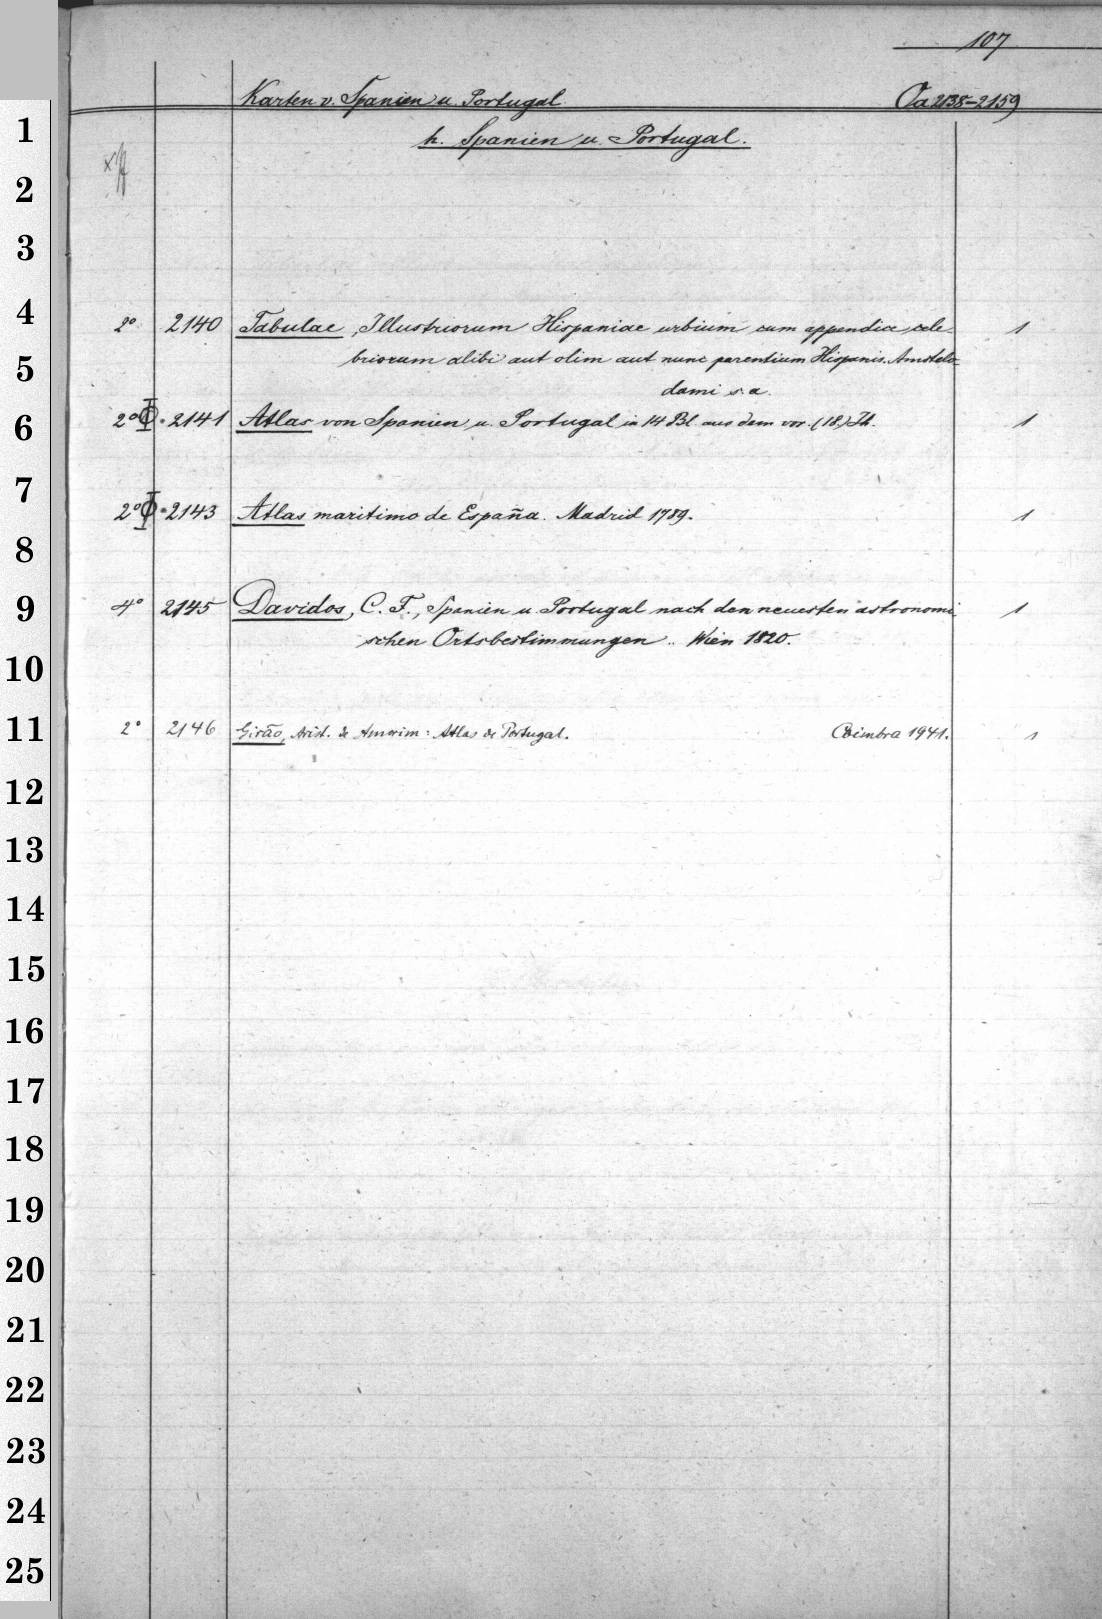 107
Karten v. Spanien u. Portugal Oa 2138-2159
h. Spanien u. Portugal.
2° 2140 Tabulae, Illustriorum Hispaniae urbium cum appendice cele-
briorum alibi aut olim aut nunc parentium Hispanis. Amstelo-
dami s. a. 1
2° Φ 2141 Atlas von Spanien u. Portugal in 14 Bl. aus dem vor. (18.) Jh. 1
2° Φ 2143 Atlas maritimo de España. Madrid 1789. 1
4° 2145 Davidos, C. F., Spanien u. Portugal nach den neuesten astronomi-
schen Ortsbestimmungen .. Wien 1820. 1
2° 2146 Girão, Arist. de Amorim: Atlas de Portugal. Coimbra 1941. 1
1
2
3
4
5
6
7
8
9
10
11
12
13
14
15
16
17
18
19
20
21
22
23
24
25